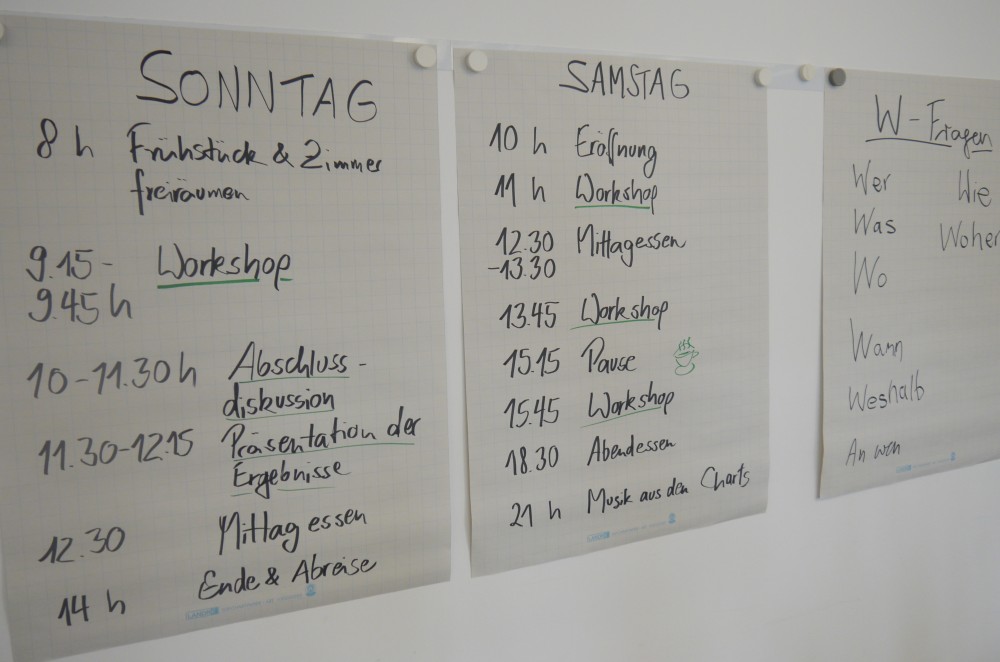 SONNTAG
8 h Frühstück & Zimmer
freiräumen
9.15 - Workshop
9.45 h
10 - 11.30 h Abschluss -
diskussion
11.30 - 12.15 Präsentation der
Ergebnisse
12.30 Mittagessen
14 h Ende & Abreise
SAMSTAG
10 h Eröffnung
11 h Workshop
12.30 Mittagessen
-13.30
13.45 Workshop
15.15 Pause
15.45 Workshop
18.30 Abendessen
21 h Musik aus den Charts
W - Fragen
Wer Wie
Was Woher
Wo
Wann
Weshalb
An wen